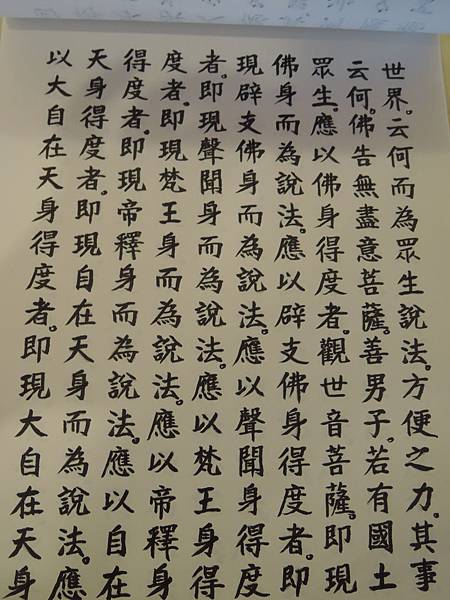 世界。云何而為眾生說法。方便之力。其事
云何。佛告無盡意菩薩。善男子。若有國土
眾生。應以佛身得度者。觀世音菩薩。即現
佛身而為說法。應以辟支佛身得度者。即
現辟支佛身而為說法。應以聲聞身得度
者。即現聲聞身而為說法。應以梵王身得
度者。即現梵王身而為說法。應以帝釋身
得度者。即現帝釋身而為說法。應以自在
天身得度者。即現自在天身而為說法。應
以大自在天身得度者。即現大自在天身